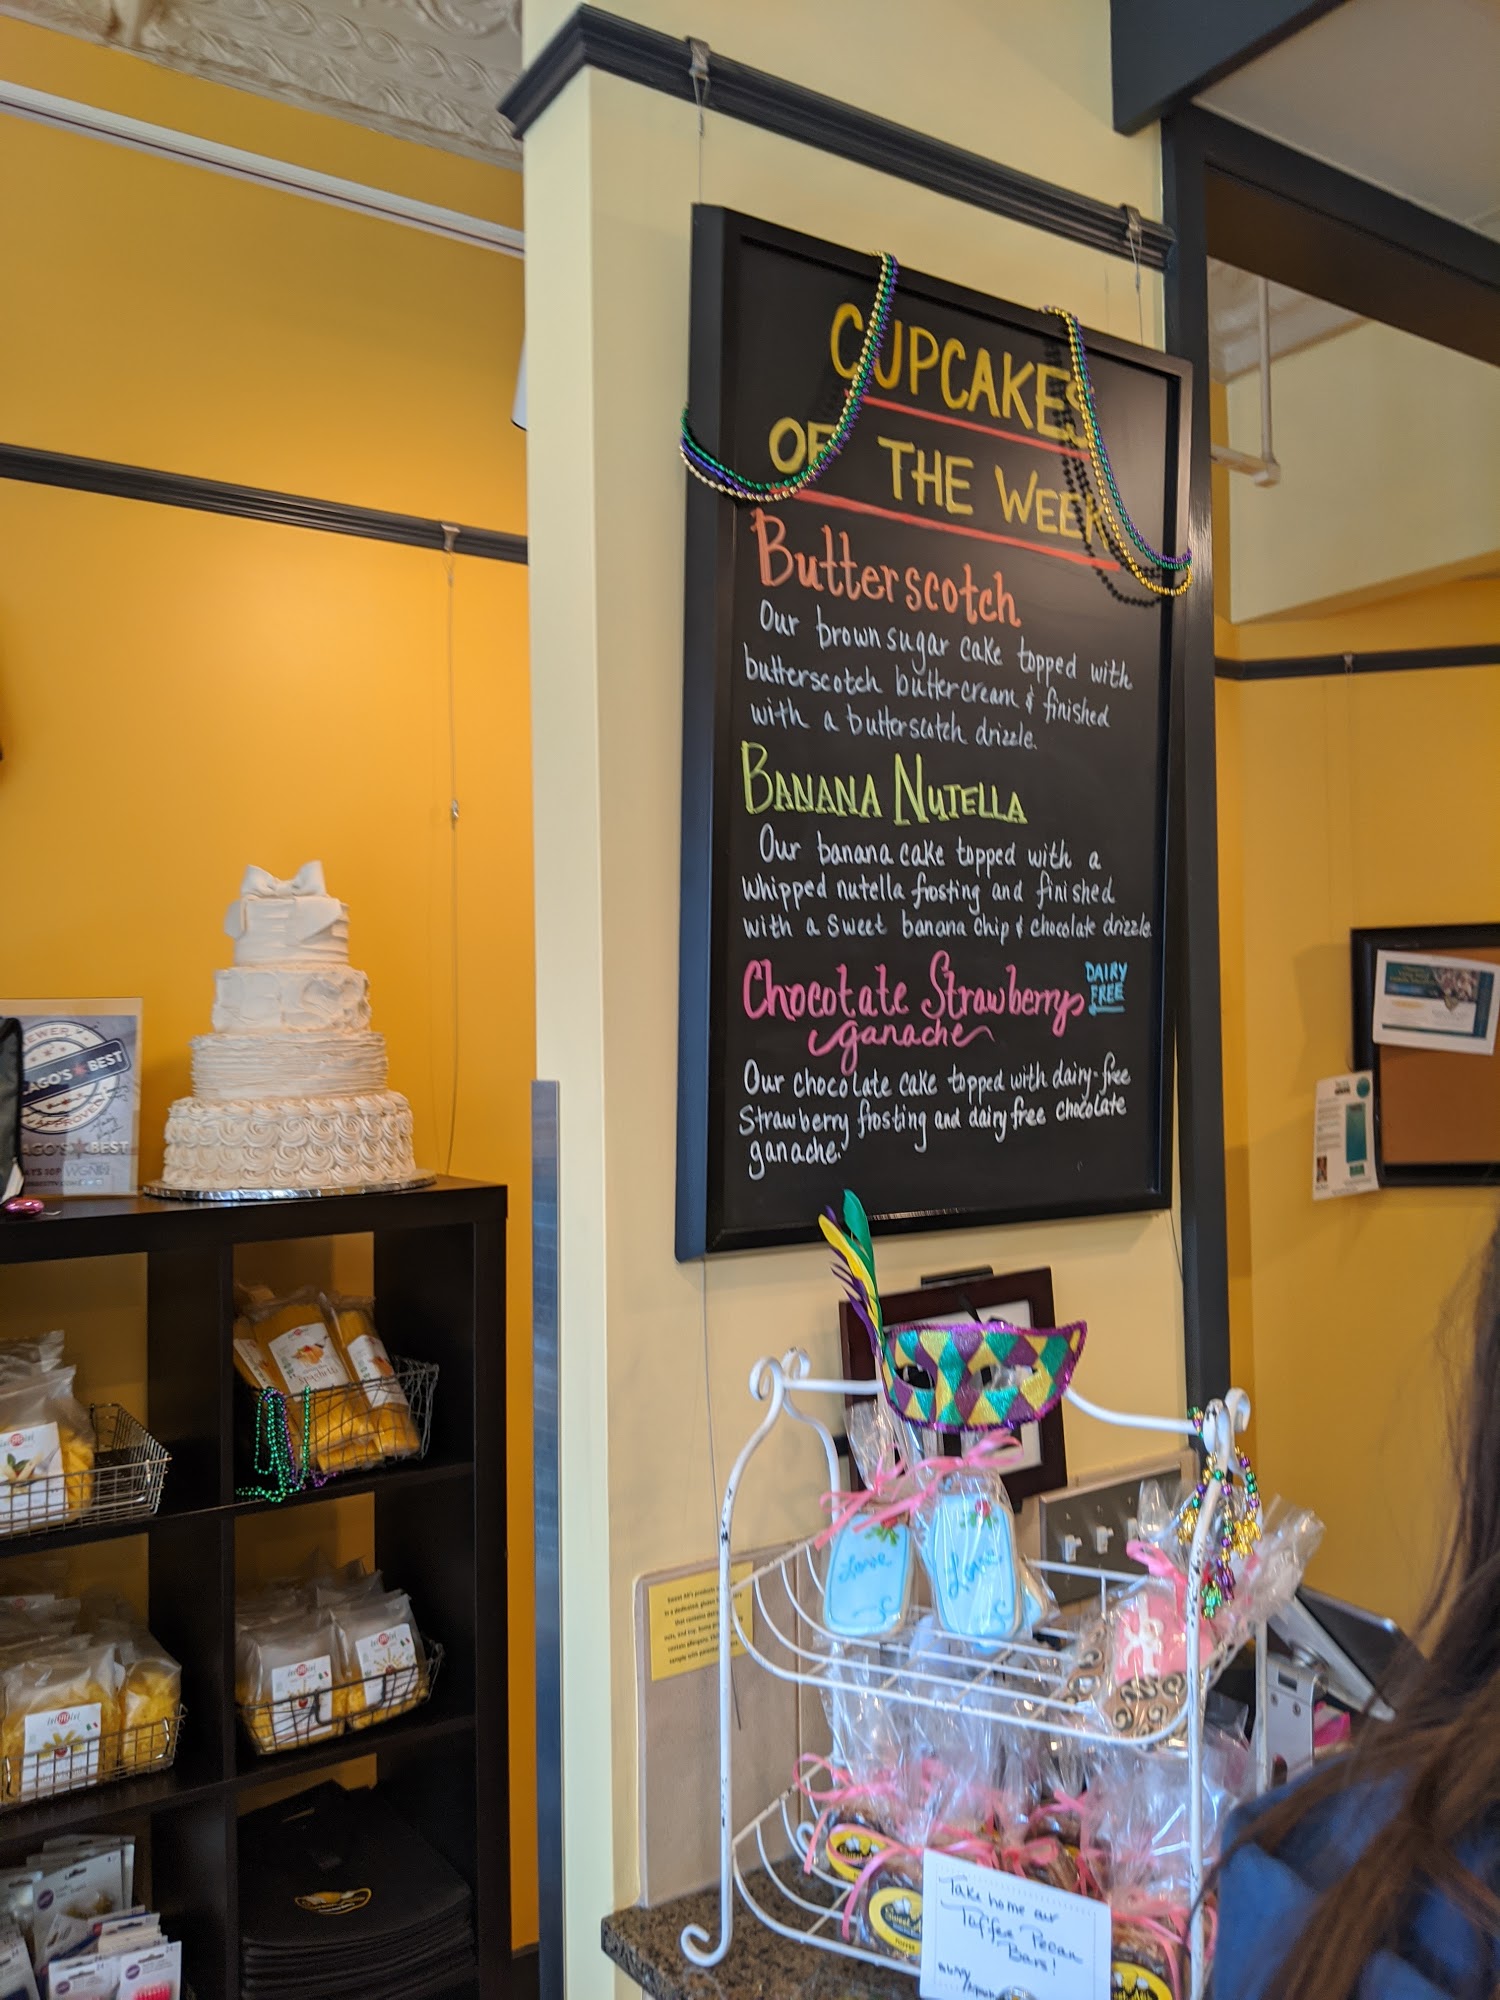 CUPCAKES
OF THE WEEK
Butterscotch
Our brown sugar cake topped with
butterscotch buttercream & finished
with a butterscotch drizzle.
BANANA NUTELLA
Our banana cake topped with a
whipped nutella frosting and finished
with a sweet banana chip & chocolate drizzle
Chocolate Strawberry
ganache
DAIRY
FREE
Our chocolate cake topped with dairy-free
Strawberry frosting and dairy free chocolate
ganache.
BEST
APPROVED
BEST
WGN
Love
Love
Take home our
Toffee Pecan
Bars!
TOFFEE